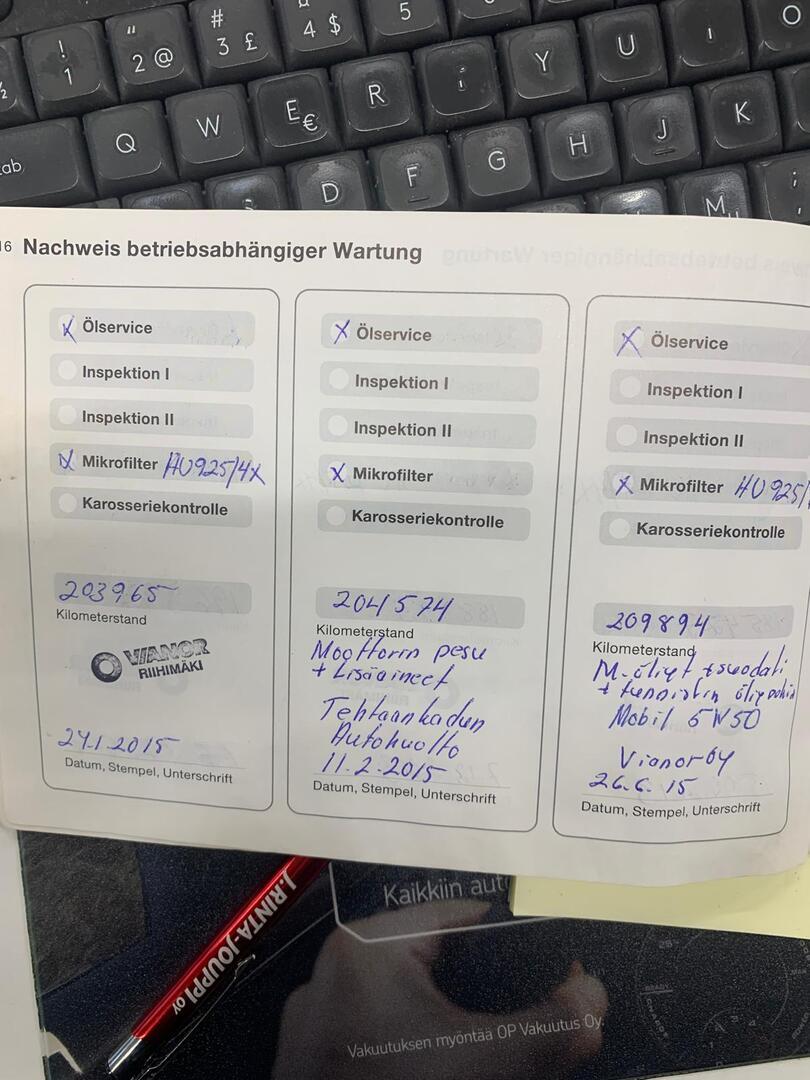 ! " # ¤ 5
1 2 @ 3 £ 4 $
½
Q W E € R Y U I O
tab D F G H J K
S M ;
16 Nachweis betriebsabhängiger Wartung
X Ölservice
Inspektion I
Inspektion II
X Mikrofilter HU925/4X
Karosseriekontrolle
203965
Kilometerstand
VIANOR
RIIHIMÄKI
24.1.2015
Datum, Stempel, Unterschrift
X Ölservice
Inspektion I
Inspektion II
X Mikrofilter
Karosseriekontrolle
204574
Kilometerstand
Moottorin pesu
+ Lisäaineet
Tehtaankadun
Autohuolto
11.2.2015
Datum, Stempel, Unterschrift
X Ölservice
Inspektion I
Inspektion II
X Mikrofilter HU925/
Karosseriekontrolle
209894
Kilometerstand
M-öljyt + suodati
+ tunnistin
Mobil 5W50
Vianor oy
26.6.15
Datum, Stempel, Unterschrift
J.RINTA-JOUPPI OY
Kaikkiin aut
Vakuutuksen myöntää OP Vakuutus Oy.